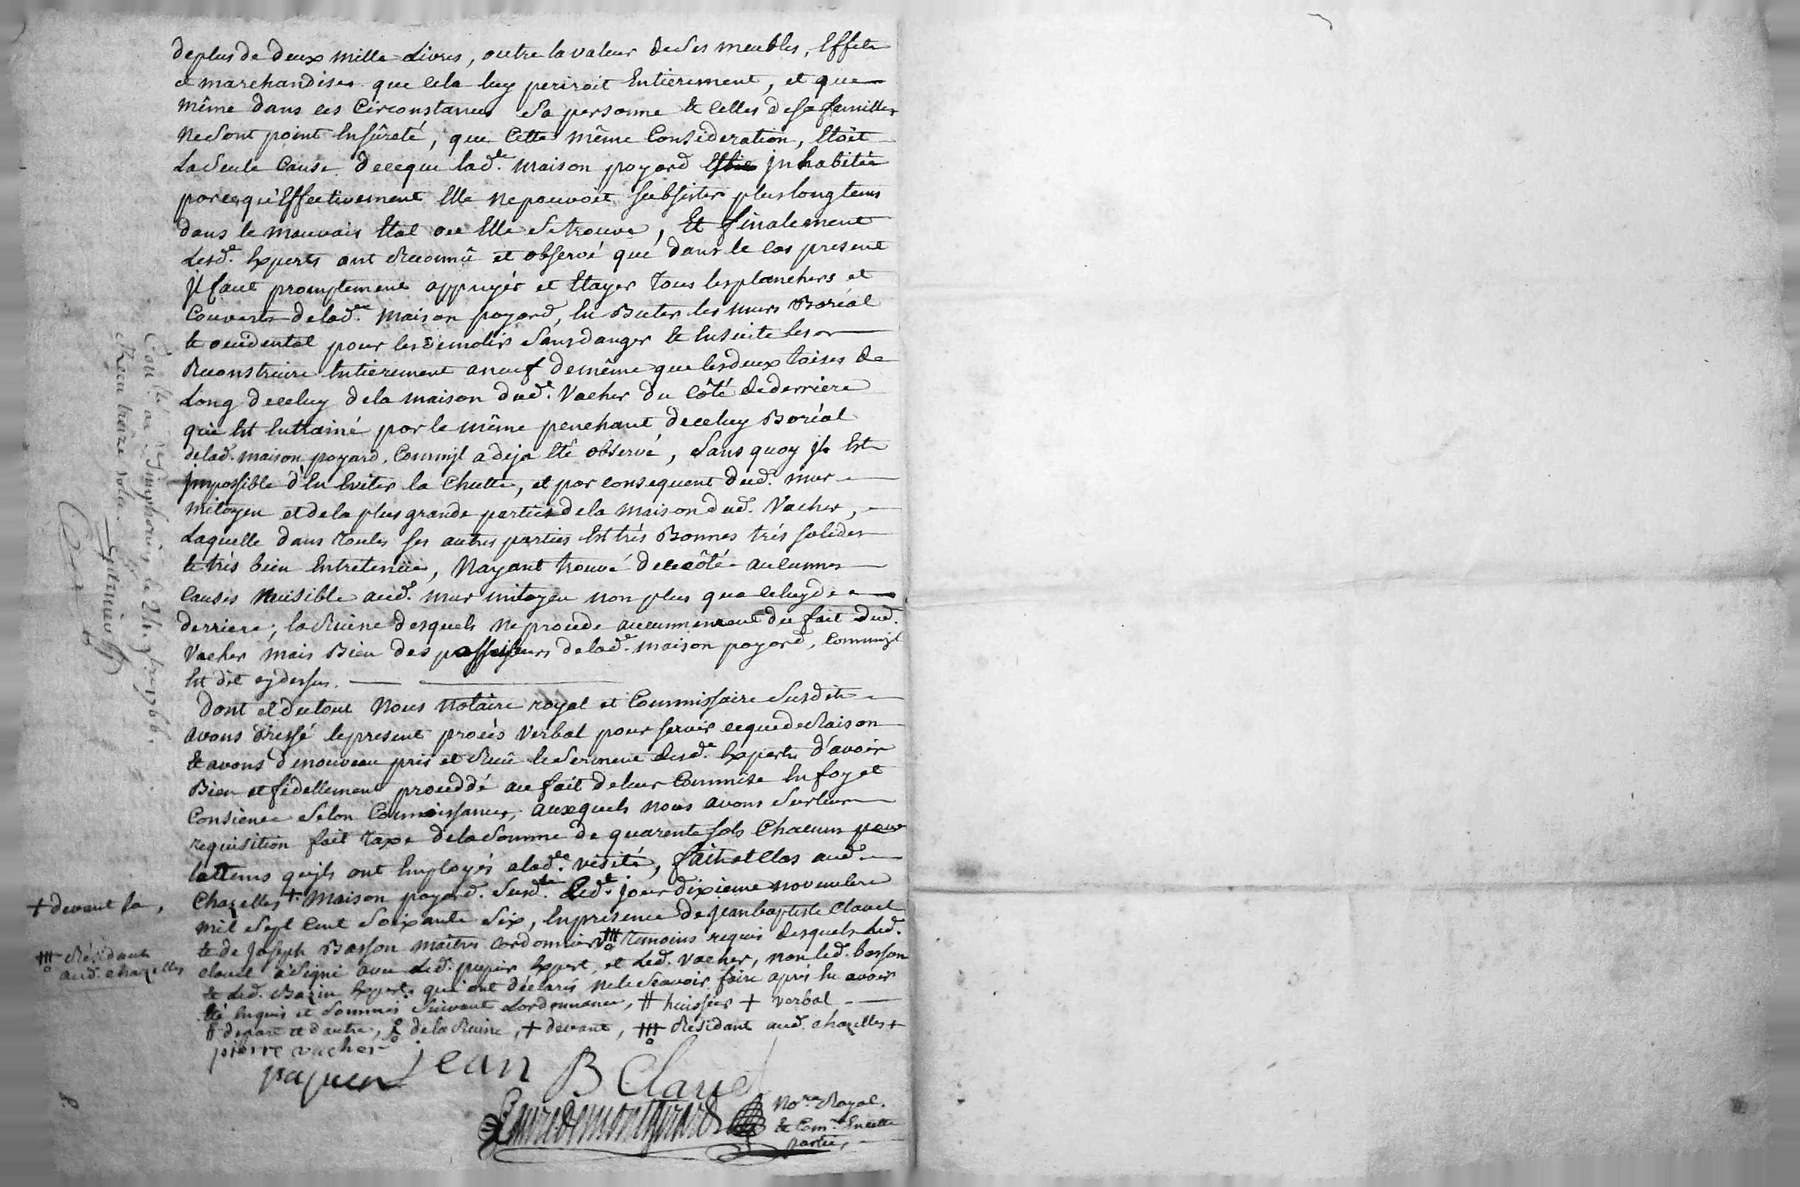 de plus de deux mille Livres, outre la valeur de Ses meubles, Effets
et marchandises que cela luy periroit Entierement, et que
même dans ces Circonstances Sa personne & celles de Sa famille
ne Sont point En Sûreté, que Cette même Consideration, Etoit
La Seule Cause de ce que lad.e maison poyard inhabitée
parce qu'Effectivement Elle ne pouvoit subsister plus long tems
dans le mauvais Etat ou Elle Se trouve, Et finalement
Lesd.s Experts ont Reconnû et observé que dans le Cas present
jl faut promptement appuyér et Etayer tous les planchers et
Couverts de lad.e maison poyard, En Buter les murs Boréal
& occidental pour les démolir Sans danger & Ensuite les
Reconstruire Entierement a neuf de même que les deux toises de
Long de celuy de la maison dud. Vacher du Côté de derriere
qui Est Entrainé par le même penchant de celuy Boréal
de lad. maison poyard, Comm'jl a deja Eté observé, Sans quoy jl Est
jmpossible d'En Eviter la Chutte, et par consequent dud. mur
mitoyen et de la plus grande partie de la maison dud. Vacher,
Laquelle dans toutes ses autres parties Est trés Bonne trés solide
& trés bien Entretenüe, Nayant trouvé de ce côté aucunnes
Causes nuisible aud. mur mitoyen non plus qua celuy de
derriere, la Ruine desquels ne procede aucunnement du fait dud.
Vacher mais Bien des possesseurs de lad.e maison poyard, Comm'jl
Est dit cy dessus.
Dont et du tout Nous Notaire royal et Commissaire Susdit
avons dressé le present procés Verbal pour servir ce que de Raison
& avons de nouveau pris et Reçu le Serment desd.s Experts d'avoir
Bien et fidellement proceddé au fait de leur Commise En foy et
Consience Selon Connoissance, auxquels nous avons Sur leur
requisition fait Taxe de la Somme de quarente sols Chacun pour
le tems qu'ils ont Employés a lad.e visite, fait et Clos aud.
Chazelles + Maison poyard Susd.e Led.t jour dixieme novembre
+ devant la,
mil Sept Cent Soixante Six, En presence de jean baptiste Clavel
& de joseph Basson maitres Cordonniers temoins requis desquels led.
Résidants
aud. chazelles
clavel a Signé avec led. Expert, et led. Vacher, non led. basson
& led. Bazin Expert qui ont déclarés ne le Sçavoir faire aprés En avoir
Eté Enquis et Sommés Suivant Lordonnance, # huissier + verbal
# depart et dautre, de la Ruine, + devant, Résidant aud. chazelles +
pierre vacher
jean B Clavel
No.re Royal.
& Com.re En cette
partie,